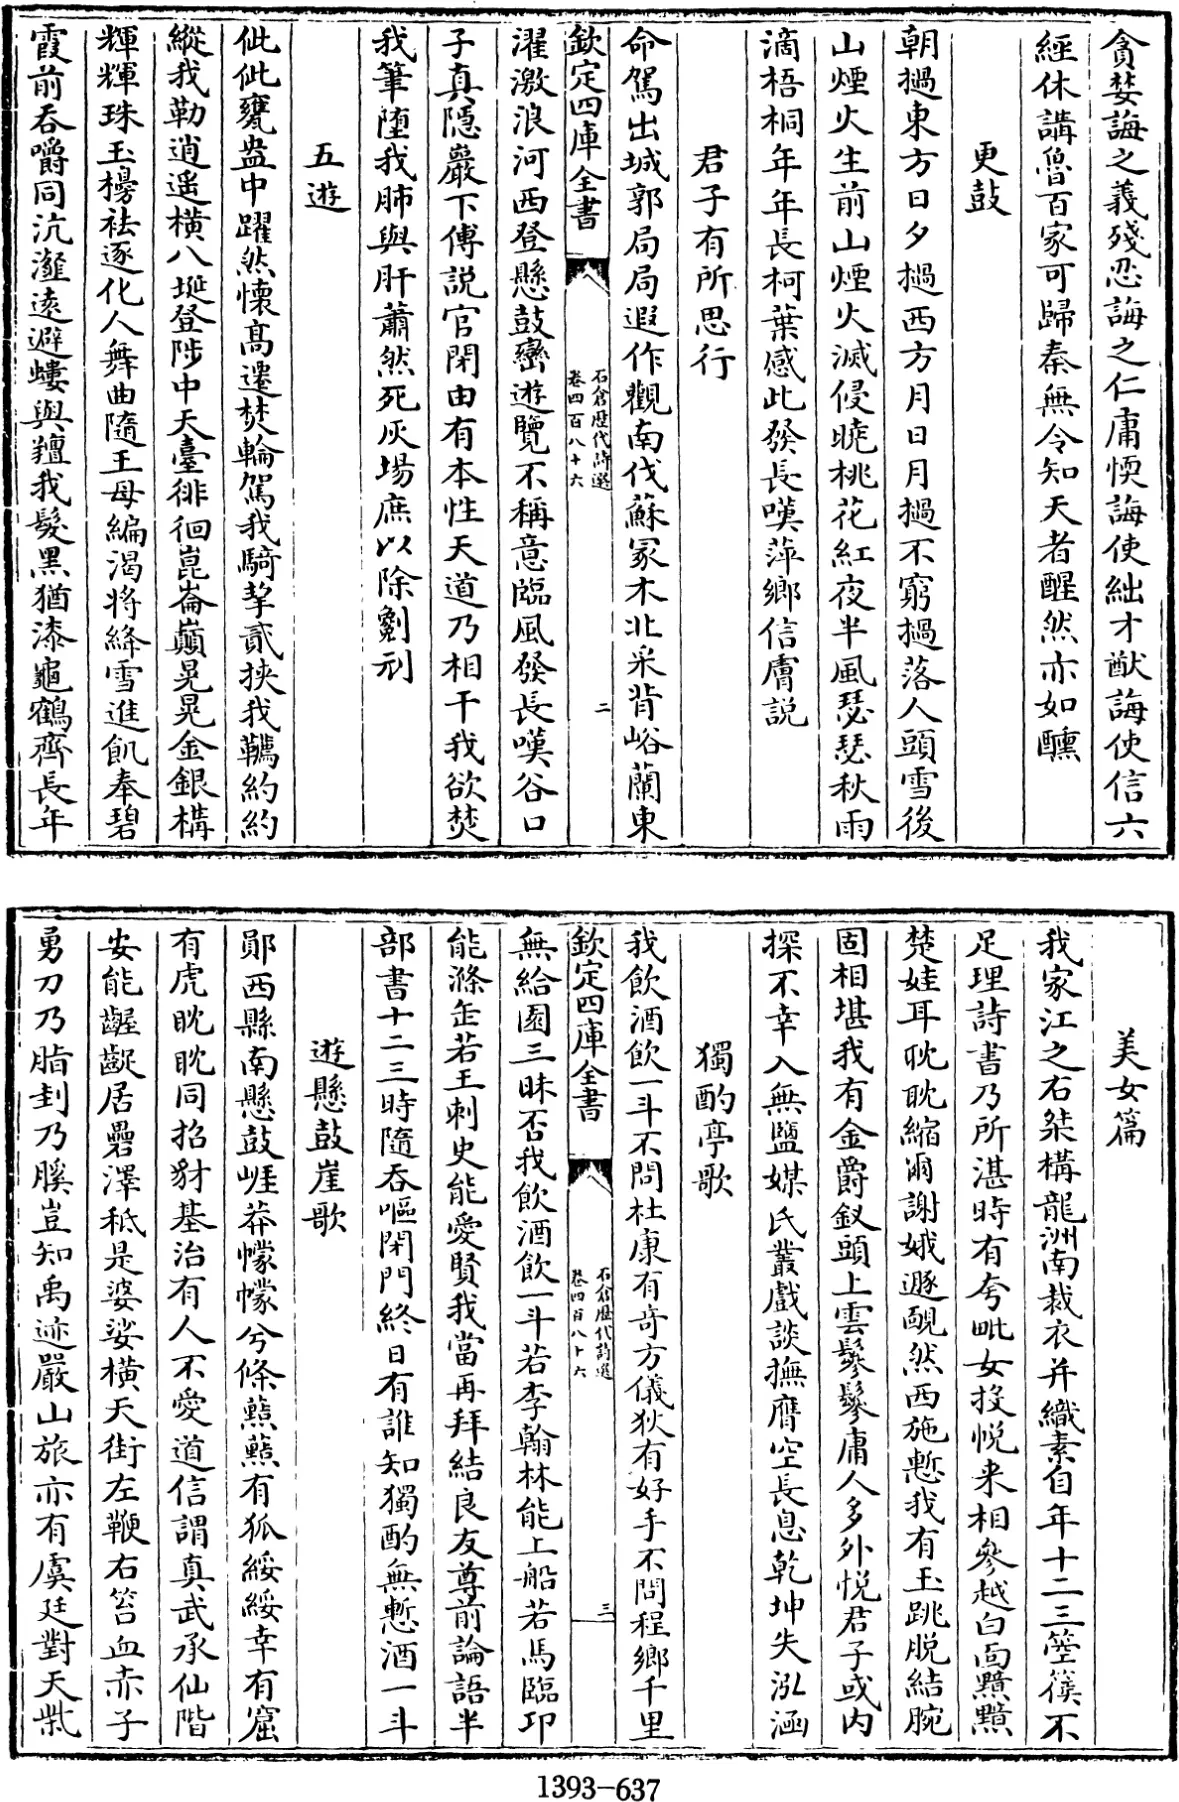 貪婪誨之義殘忍誨之仁庸愞誨使絀才猷誨使信六
經休講魯百家可歸秦無令知天者醒然亦如醺
更鼓
朝撾東方日夕撾西方月日月撾不窮撾落人頭雪後
山煙火生前山煙火滅侵曉桃花紅夜半風瑟瑟秋雨
滴梧桐年年長柯葉感此發長嘆萍鄉信膚説
君子有所思行
命駕出城郭局局遐作觀南伐蘇冢木北采肯峪蘭東
欽定四庫全書
石倉歷代詩選
卷四百八十六
二
濯激浪河西登懸鼓巒遊覽不稱意臨風發長嘆谷口
子真隱巖下傅説官閑由有本性天道乃相干我欲焚
我筆堕我肺與肝蕭然死灰場庶以除劖刓
五遊
仳仳甕盎中躍然懷高遷焚輪駕我騎挈貳挾我韉約約
縱我勒逍遥横八埏登陟中天臺徘徊崑崙巔晃晃金銀構
輝輝珠玉櫋袪逐化人舞曲隨王母編渴將絳雪進飢奉碧
霞前吞嚼同沆瀣逺避螻與羶我髮黑猶漆龜鶴齊長年
美女篇
我家江之右桀構龍洲南裁衣并織素自年十二三箜篌不
足理詩書乃所湛時有夸毗女投悦来相參越白面黬黬
楚娃耳耽耽縮崗謝娥遯靦然西施慙我有玉跳脱結腕
固相堪我有金爵釵頭上雲鬖鬖庸人多外悦君子或内
探不幸入無鹽媒氏叢戲談撫膺空長息乾坤失泓涵
獨酌亭歌
我飲酒飲一斗不問杜康有奇方儀狄有好手不問程鄉千里
欽定四庫全書
石倉歷代詩選
卷四百八十六
三
無給園三昧否我飲酒飲一斗若李翰林能上船若馬臨卭
能滌缶若王刺史能愛賢我當再拜結良友尊前論語半
部書十二三時隨吞嘔閉門終日有誰知獨酌無慙酒一斗
遊懸鼓崖歌
鄖西縣南懸鼓崕莽幪幪兮條蘓蘓有狐綏綏幸有窟
有虎眈眈同招豺基治有人不愛道信謂真武承仙階
安能齷齪居罍澤秪是婆娑横天街左鞭右笞血赤子
勇刀乃脂刲乃膎豈知禹迹嚴山旅亦有虞廷對天祡
1393-637